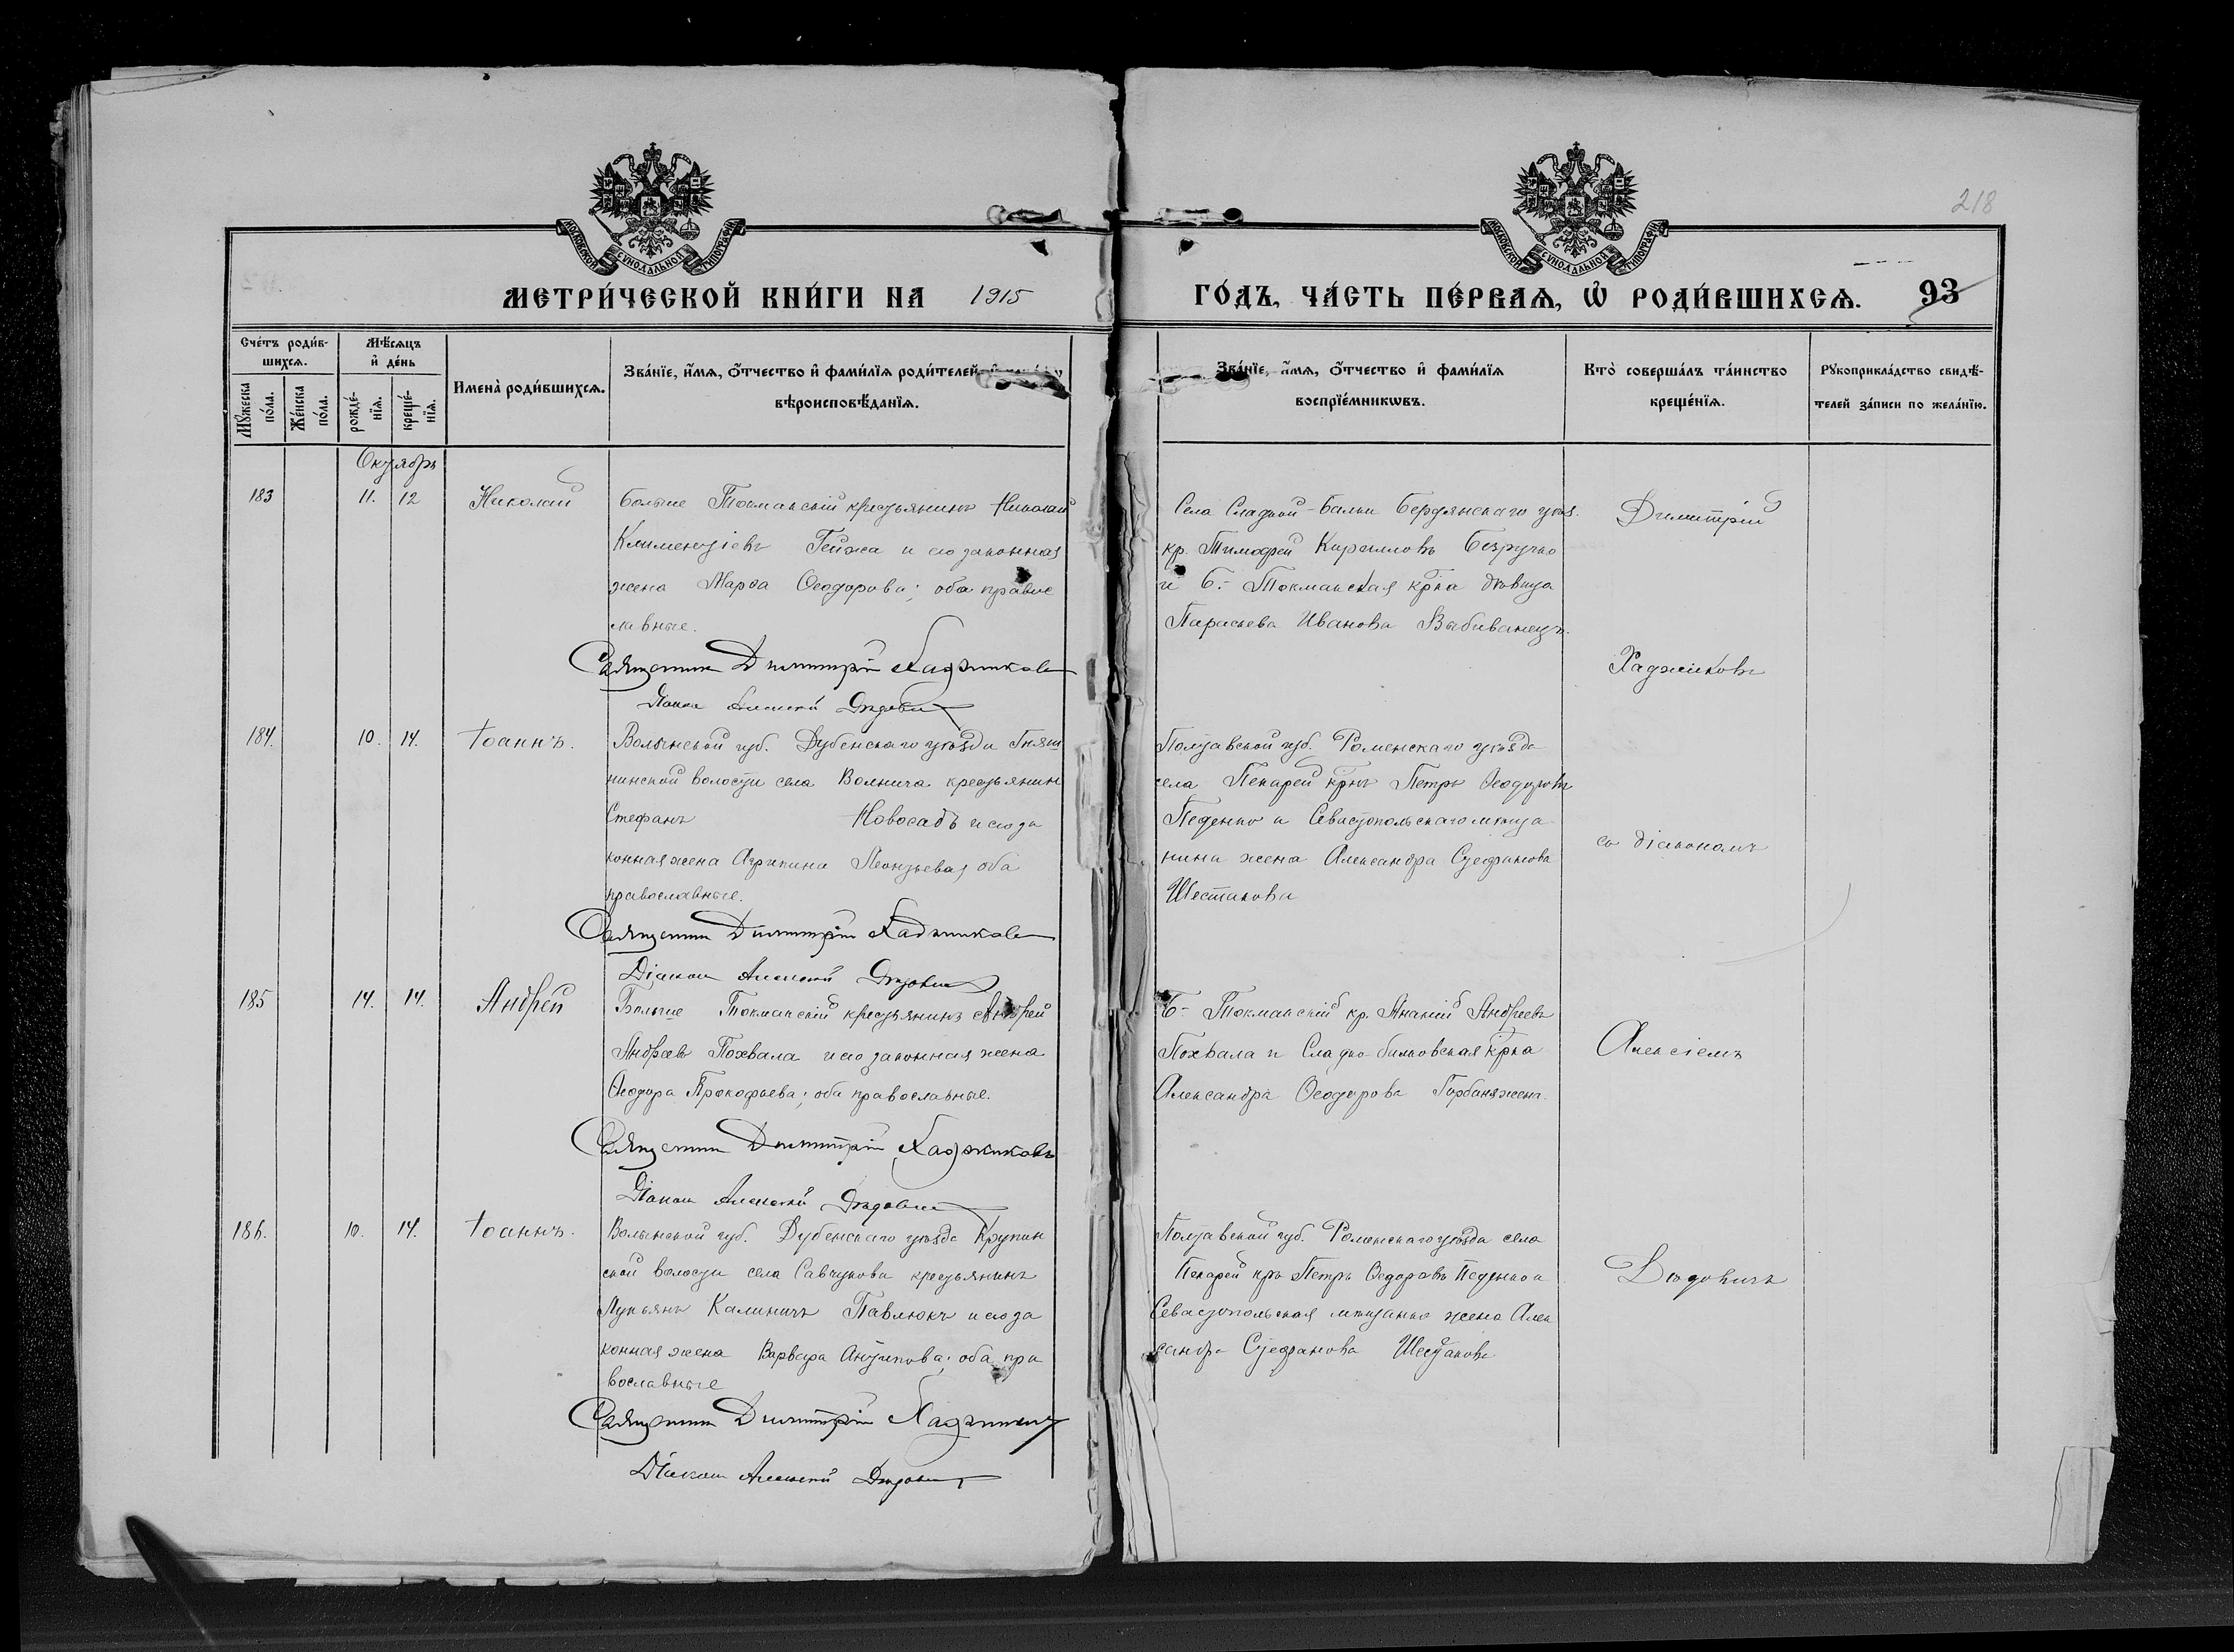 218
МОСКОВСКОЙ СУНОДАЛЬНОЙ ТИПОГРАФІИ
МОСКОВСКОЙ СУНОДАЛЬНОЙ ТИПОГРАФІИ
МЕТРИ́ЧЕСКОЙ КНИ́ГИ НА 1915
ГО́ДЪ, ЧА́СТЬ ПЕ́РВАѦ, Ѡ҆ РОДИ́ВШИХСѦ. 93
Сче́тъ роди́в-
шихсѧ.
Мꙋ́жеска
по́ла.
Же́нска
по́ла.
Мѣ́сѧцъ
и҆ де́нь
рожде́-
нїѧ.
креще́-
нїѧ.
Имена̀ роди́вшихсѧ.
Зва́нїе, и҆́мѧ, ѻ҆́тчество и҆ фами́лїѧ роди́телей,
вѣроисповѣ́данїѧ.
Зва́нїе, и҆́мѧ, ѻ҆́тчество и҆ фами́лїѧ
воспрїе́мникѡвъ.
Кто̀ соверша́лъ та́инство
креще́нїѧ.
Рꙋкоприкла́дство свидѣ́-
телей за́писи по жела́нїю.
Октябрь
183
11.
12
Николай
Больше Токмакскій крестьянинъ Николай
Климентіевъ Гейжа и его законная
жена Марѳа Ѳеодорова; оба право
славные.
Священникъ Димитрій Хаджиковъ
Діаконъ Алексѣй Дѣдовичъ
Села Сладкой-Балки Бердянскаго уѣз.
кр. Тимофей Кирилловъ Безручко
и Б.-Токмакская кр̑ка дѣвица
Параскева Иванова Выбиванецъ.
Димитрій
Хаджиковъ
184.
10.
14.
Іоаннъ.
Волынской губ. Дубенскаго уѣзда
нинской волости села Волнича крестьянинъ
Стефанъ Новосадъ и его за
конная жена Агрипина Леонтьева, оба
православные.
Священникъ Димитрій Хаджиковъ
Діаконъ Алексѣй Дѣдовичъ
Полтавской губ. Роменскаго уѣзда
села Пекарей кр̑нъ Петръ Ѳеодоровъ
Педенко и Севастопольскаго мѣща
нина жена Александра Стефанова
Шестакова
со діакономъ
185
14.
14.
Андрей
Больше Токмакскій крестьянинъ Андрей
Андреевъ Похвала и его законная жена
Ѳеодора Прокофьева; оба православные.
Священникъ Димитрій Хаджиковъ
Діаконъ Алексѣй Дѣдовичъ
Б-Токмакскій кр. Ананій Андреевъ
Похвала и Сладко-балковская кр̑ка
Александра Ѳеодорова
Алексіемъ
186.
10.
14.
Іоаннъ.
Волынской губ. Дубенскаго уѣзда Крупин
ской волости села Савчукова крестьянинъ
Лукьянъ Калиничъ Павлюкъ и его за
конная жена Варвара Антипова; оба пра
вославные
Священникъ Димитрій Хаджиковъ
Діаконъ Алексѣй Дѣдовичъ
Полтавской губ. Роменскаго уѣзда села
Пекарей крн Петръ Ѳедоровъ Педенко и
Севастопольская мѣщанка жена Алек
сандра Стефанова Шестакова
Дѣдовичъ